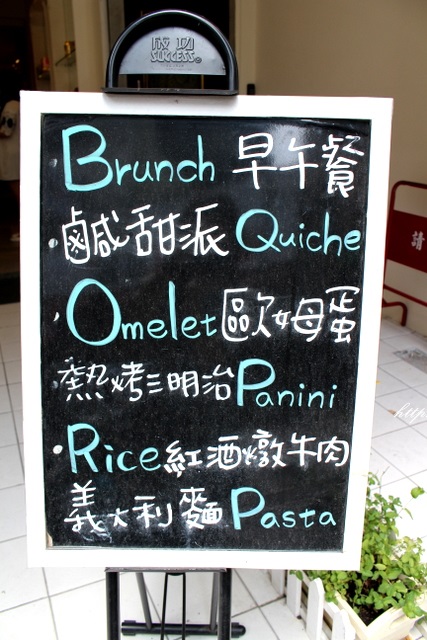 成功
SUCCESS®
Brunch 早午餐
鹹甜派 Quiche
Omelet 歐姆蛋
熱烤三明治 Panini
Rice 紅酒燉牛肉
義大利麵 Pasta
請
http